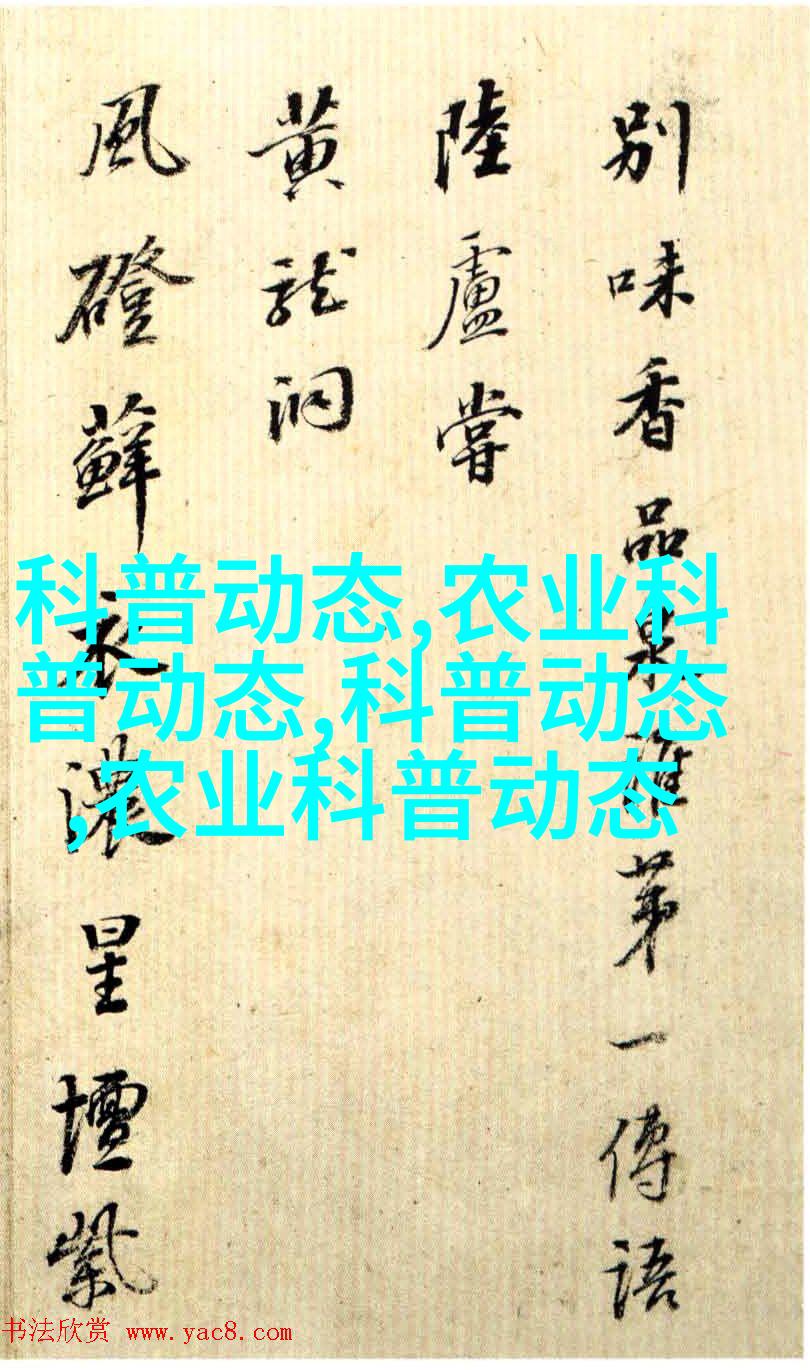 别味香品泉推第一傳語
陸盧嘗
黄龍洞
風磴蘚衣濃星壇紫
科普动态,农业科
普动态,科普动态
,农业科普动态
书法欣赏 www.yac8.com